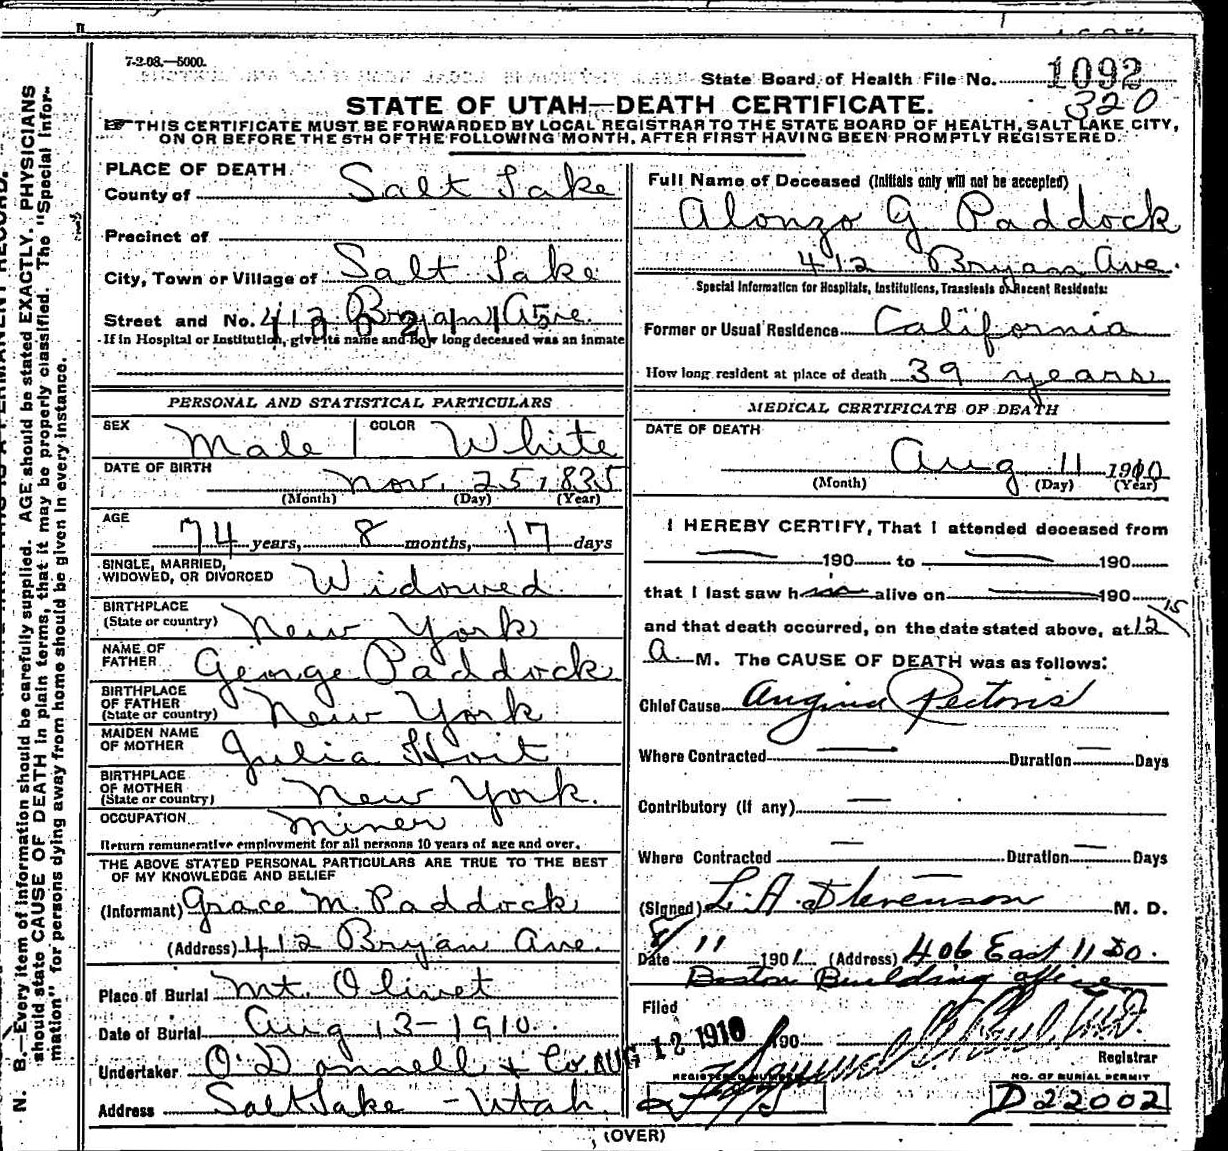 7-2-08.—5000.
State Board of Health File No. 1092
320
STATE OF UTAH—DEATH CERTIFICATE.
☞ THIS CERTIFICATE MUST BE FORWARDED BY LOCAL REGISTRAR TO THE STATE BOARD OF HEALTH, SALT LAKE CITY,
ON OR BEFORE THE 5TH OF THE FOLLOWING MONTH, AFTER FIRST HAVING BEEN PROMPTLY REGISTERED.
PLACE OF DEATH
County of Salt Lake
Precinct of
City, Town or Village of Salt Lake
Street and No. 412 Bryan Ave.
If in Hospital or Institution, give its name and how long deceased was an inmate
PERSONAL AND STATISTICAL PARTICULARS
SEX Male COLOR White
DATE OF BIRTH Nov. 25, 1835
(Month) (Day) (Year)
AGE 74 years, 8 months, 17 days
SINGLE, MARRIED,
WIDOWED, OR DIVORCED Widowed
BIRTHPLACE
(State or country) New York
NAME OF
FATHER George Paddock
BIRTHPLACE
OF FATHER
(State or country) New York
MAIDEN NAME
OF MOTHER Julia Hoit
BIRTHPLACE
OF MOTHER
(State or country) New York.
OCCUPATION Miner
Return remunerative employment for all persons 10 years of age and over.
THE ABOVE STATED PERSONAL PARTICULARS ARE TRUE TO THE BEST
OF MY KNOWLEDGE AND BELIEF
(Informant) Grace M. Paddock
(Address) 412 Bryan Ave.
Place of Burial Mt. Olivet
Date of Burial Aug 13-1910.
Undertaker O'Donnell & Co.
Address Salt Lake - Utah.
Full Name of Deceased (Initials only will not be accepted)
Alonzo G Paddock
412 Bryan Ave.
Special Information for Hospitals, Institutions, Transients or Recent Residents:
Former or Usual Residence California
How long resident at place of death 39 years
MEDICAL CERTIFICATE OF DEATH
DATE OF DEATH
Aug 11 1910
(Month) (Day) (Year)
I HEREBY CERTIFY, That I attended deceased from
190 to 190
that I last saw h alive on 190
and that death occurred, on the date stated above, at 12 15
a M. The CAUSE OF DEATH was as follows:
Chief Cause Angina Pectoris
Where Contracted Duration Days
Contributory (If any)
Where Contracted Duration Days
(Signed) L. A. Stevenson M. D.
Date 8/11 190 (Address) 406 East 11 So.
Boston Building office
Filed
AUG 12 1910 190
Registrar
REGISTERED NUMBER
NO. OF BURIAL PERMIT
D 22002
(OVER)
N. B.—Every item of information should be carefully supplied. AGE should be stated EXACTLY. PHYSICIANS
should state CAUSE OF DEATH in plain terms, that it may be properly classified. The "Special Infor-
mation" for persons dying away from home should be given in every instance.